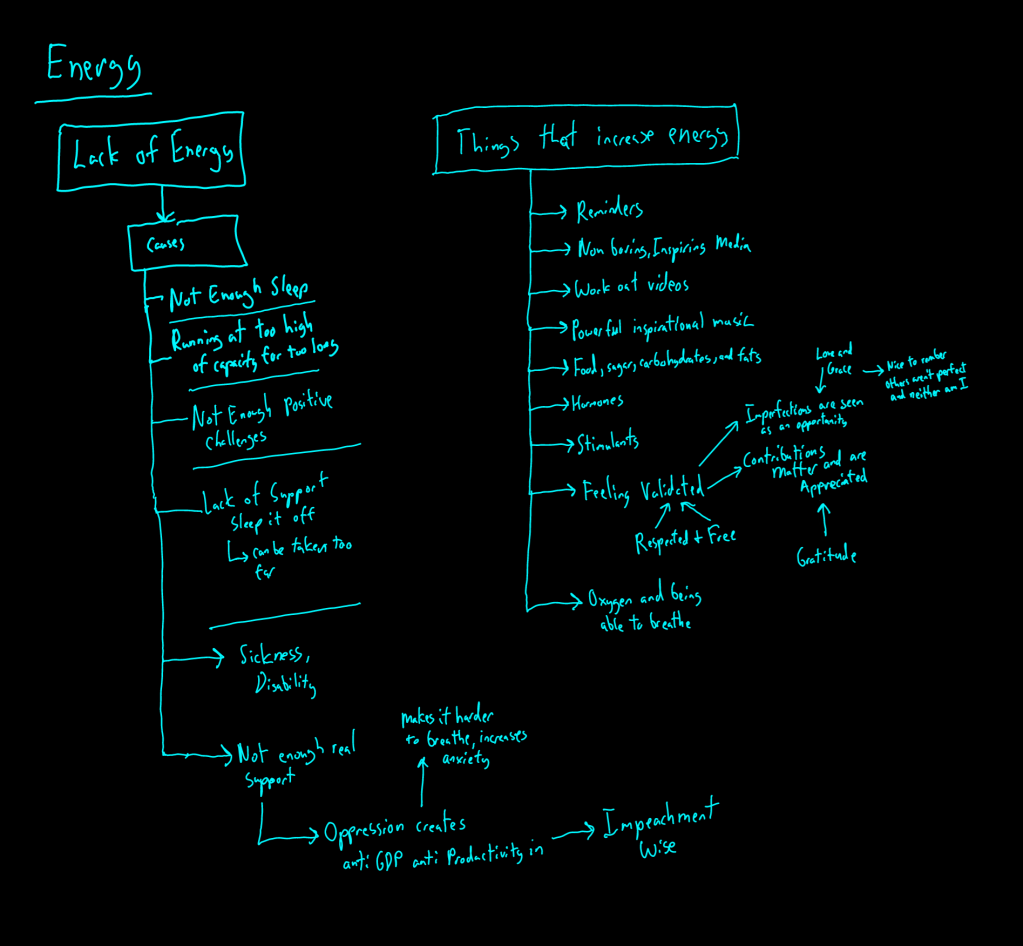 Energy
Lack of Energy
Causes
Not Enough Sleep
Running at too high
of capacity for too long
Not Enough Positive
challenges
Lack of Support
Sleep it off
can be taken too
far
Sickness,
Disability
Not enough real
support
makes it harder
to breathe, increases
anxiety
Oppression creates
anti GDP anti Productivity in
Impeachment
Wise
Things that increase energy
Reminders
Non boring, Inspiring Media
Work out videos
Powerful inspirational music
Food, sugar, carbohydrates, and fats
Hormones
Stimulants
Feeling Validated
Respected + Free
Love and
Grace
Nice to
others aren't perfect
and neither am I
Imperfections are seen
as an opportunity
Contributions
Matter and are
Appreciated
Gratitude
Oxygen and being
able to breathe